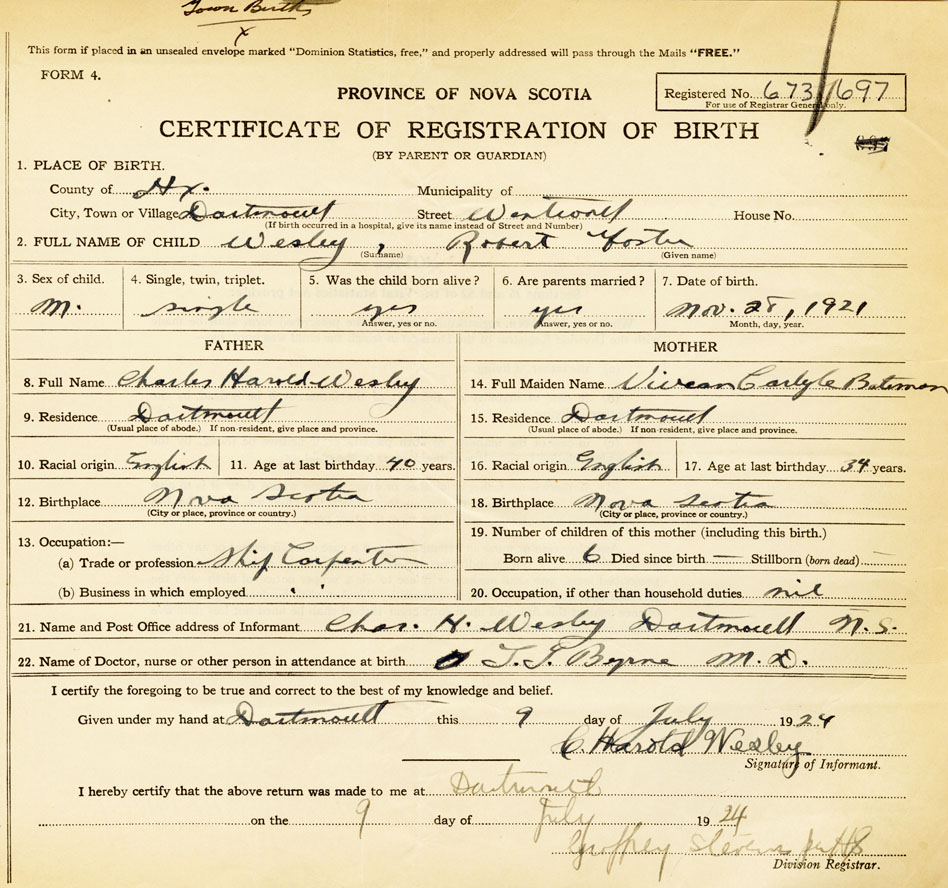 Town Births
X
This form if placed in an unsealed envelope marked "Dominion Statistics, free," and properly addressed will pass through the Mails "FREE."
FORM 4.
Registered No. 673/1697
For use of Registrar General only.
PROVINCE OF NOVA SCOTIA
CERTIFICATE OF REGISTRATION OF BIRTH
(BY PARENT OR GUARDIAN)
1. PLACE OF BIRTH.
County of Hx. Municipality of
City, Town or Village Dartmouth Street Wentworth House No.
(If birth occurred in a hospital, give its name instead of Street and Number)
2. FULL NAME OF CHILD Wesley, Robert Foster
(Surname) (Given name)
3. Sex of child. 4. Single, twin, triplet. 5. Was the child born alive? 6. Are parents married? 7. Date of birth.
M. single yes yes Nov. 28, 1921
Answer, yes or no. Answer, yes or no. Month, day, year.
FATHER MOTHER
8. Full Name Charles Harold Wesley 14. Full Maiden Name Vivean Carlyle Bateman
9. Residence Dartmouth 15. Residence Dartmouth
(Usual place of abode.) If non-resident, give place and province. (Usual place of abode.) If non-resident, give place and province.
10. Racial origin English 11. Age at last birthday 40 years. 16. Racial origin English 17. Age at last birthday 34 years.
12. Birthplace Nova Scotia 18. Birthplace Nova Scotia
(City or place, province or country.) (City or place, province or country.)
13. Occupation:— 19. Number of children of this mother (including this birth.)
(a) Trade or profession Ship Carpenter Born alive 6 Died since birth — Stillborn (born dead) —
(b) Business in which employed " 20. Occupation, if other than household duties nil
21. Name and Post Office address of Informant Chas. H. Wesley Dartmouth N.S.
22. Name of Doctor, nurse or other person in attendance at birth Byrne M.D.
I certify the foregoing to be true and correct to the best of my knowledge and belief.
Given under my hand at Dartmouth this 9 day of July 1924
C. Harold Wesley
Signature of Informant.
I hereby certify that the above return was made to me at Dartmouth
on the 9 day of July 1924
Geoffrey Stevens
Division Registrar.